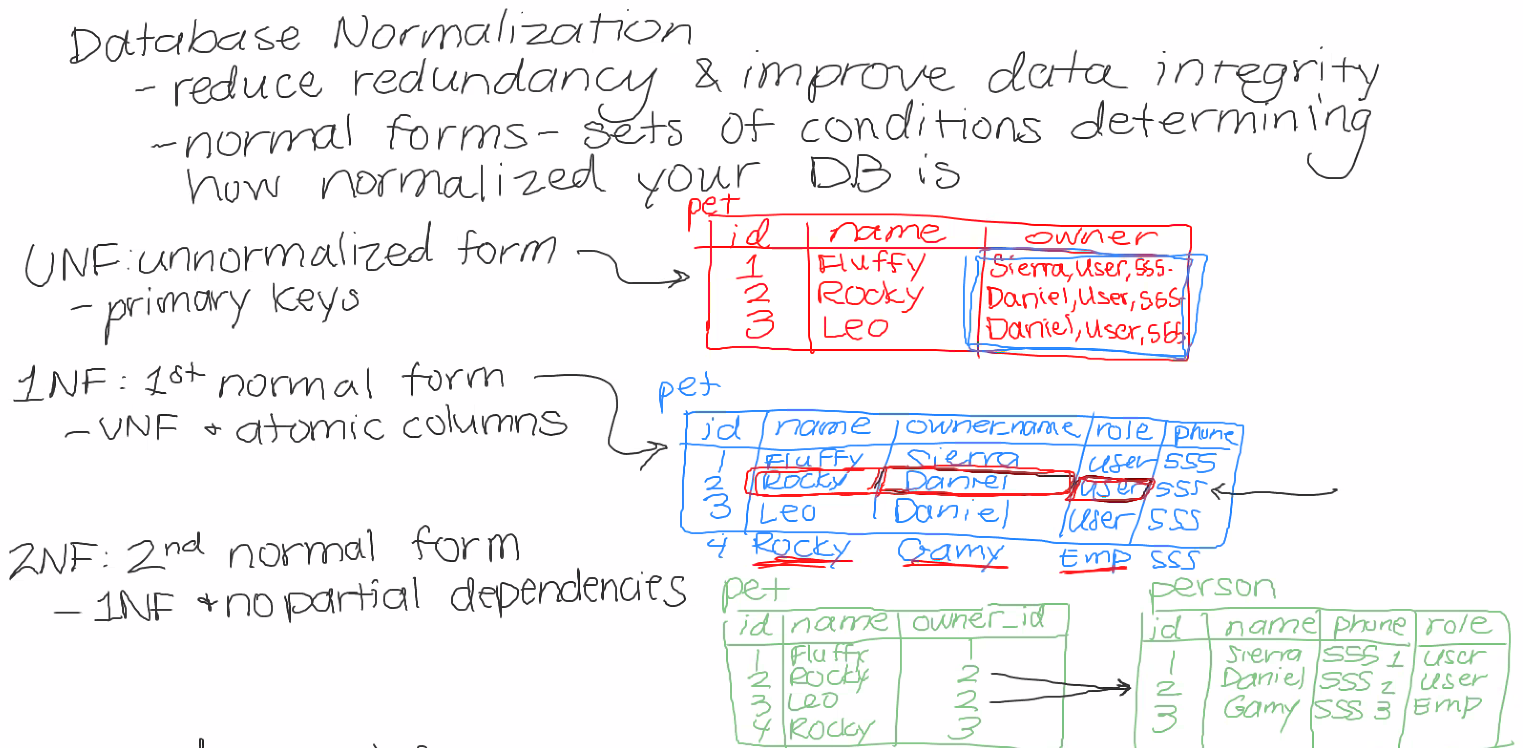 Database Normalization
- reduce redundancy & improve data integrity
- normal forms - sets of conditions determining
how normalized your DB is
UNF: unnormalized form
- primary keys
pet
id name owner
1 Fluffy Sierra, User, 555.
2 Rocky Daniel, User, 555
3 Leo Daniel, User, 555.
1NF: 1st normal form
- UNF + atomic columns
pet
id name owner_name role phone
1 Fluffy Sierra user 555
2 Rocky Daniel user 555
3 Leo Daniel User 555
4 Rocky Gamy Emp 555
2NF: 2nd normal form
- 1NF + no partial dependencies
pet
id name owner_id
1 Fluffy 1
2 Rocky 2
3 Leo 2
4 Rocky 3
person
id name phone role
1 Sierra 555 1 user
2 Daniel 555 2 user
3 Gamy 555 3 Emp